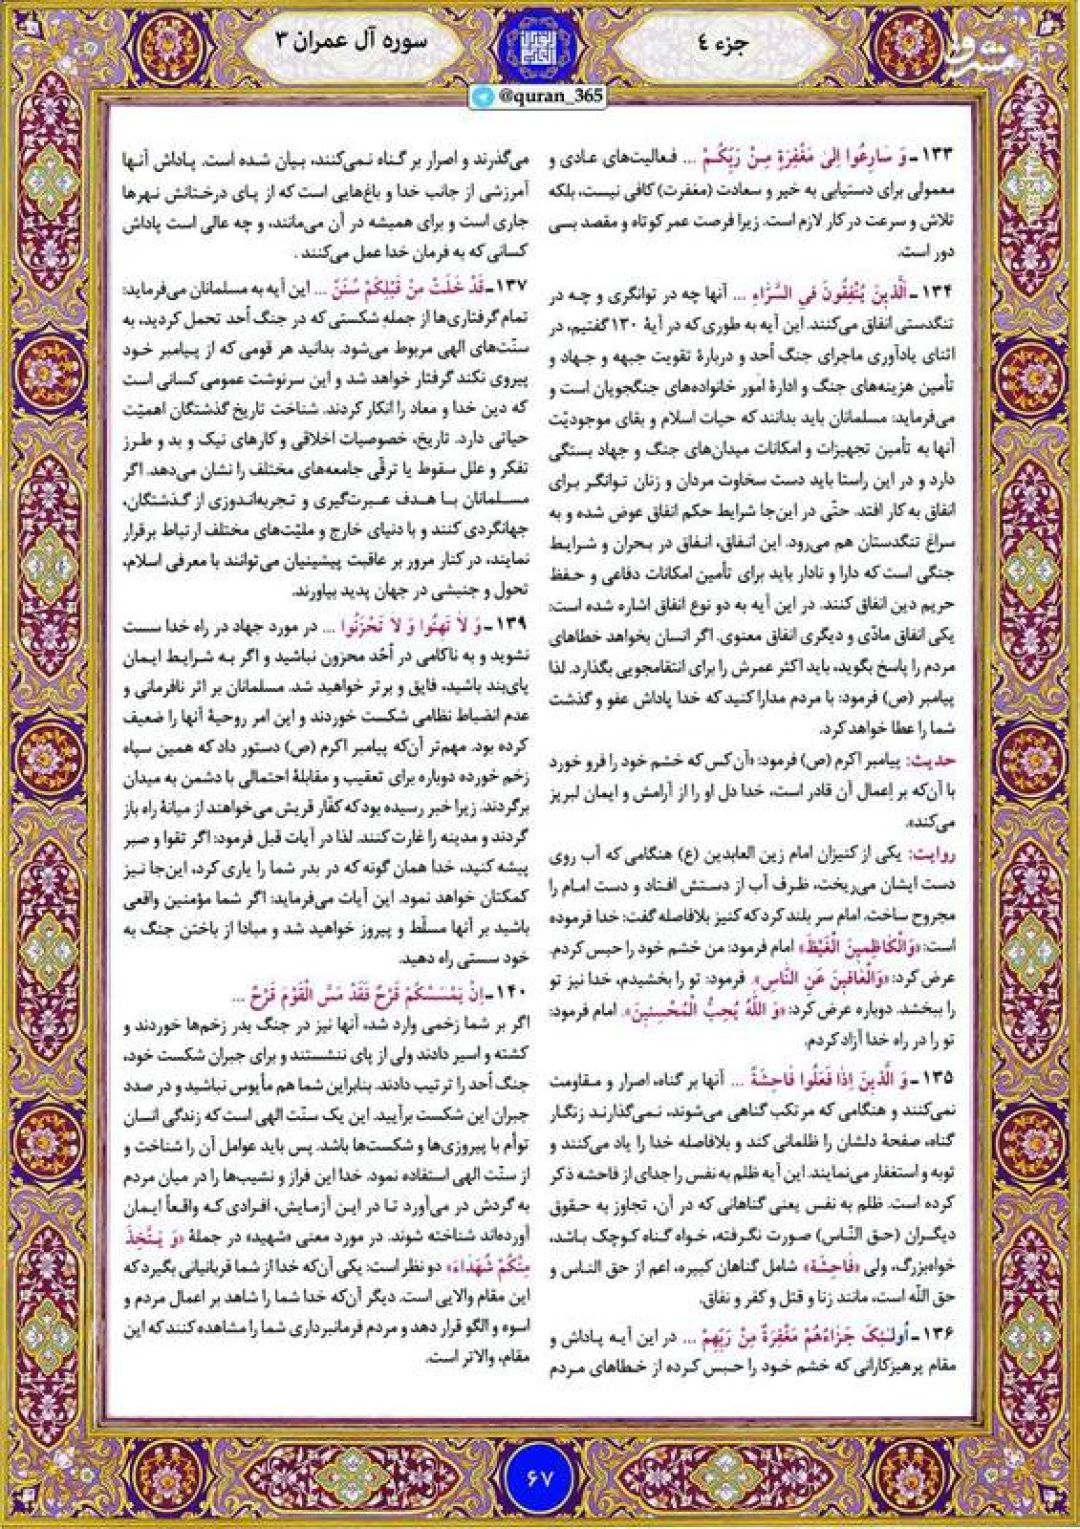 جزء ۴
سوره آل عمران ۳
@quran_365
۱۳۳ـ وَ سَارِعُوا اِلیٰ مَغْفِرَةٍ مِنْ رَبِّکُمْ ... فعالیت‌های عادی و
معمولی برای دستیابی به خیر و سعادت (مغفرت) کافی نیست، بلکه
تلاش و سرعت در کار لازم است. زیرا فرصت عمر کوتاه و مقصد بسی
دور است.
۱۳۴ـ اَلَّذینَ یُنْفِقُونَ فیِ السَّرَّاءِ ... آنها چه در توانگری و چه در
تنگدستی انفاق می‌کنند. این آیه به طوری که در آیهٔ ۱۳۰ گفتیم، در
اثنای یادآوری ماجرای جنگ اُحد و دربارهٔ تقویت جبهه و جهاد و
تأمین هزینه‌های جنگ و ادارهٔ امور خانواده‌های جنگجویان است و
می‌فرماید: مسلمانان باید بدانند که حیات اسلام و بقای موجودیّت
آنها به تأمین تجهیزات و امکانات میدان‌های جنگ و جهاد بستگی
دارد و در این راستا باید دست سخاوت مردان و زنان توانگر برای
انفاق به کار افتد. حتّی در این‌جا شرایط حکم انفاق عوض شده و به
سراغ تنگدستان هم می‌رود. این انفاق، انفاق در بحران و شرایط
جنگی است که دارا و نادار باید برای تأمین امکانات دفاعی و حفظ
حریم دین انفاق کنند. در این آیه به دو نوع انفاق اشاره شده است:
یکی انفاق مادّی و دیگری انفاق معنوی. اگر انسان بخواهد خطاهای
مردم را پاسخ بگوید، باید اکثر عمرش را برای انتقامجویی بگذارد. لذا
پیامبر (ص) فرمود: با مردم مدارا کنید که خدا پاداش عفو و گذشت
شما را عطا خواهد کرد.
حدیث: پیامبر اکرم (ص) فرمود: «آن کس که خشم خود را فرو خورد
با آن‌که بر اِعمال آن قادر است، خدا دل او را از آرامش و ایمان لبریز
می‌کند».
روایت: یکی از کنیزان امام زین العابدین (ع) هنگامی که آب روی
دست ایشان می‌ریخت، ظرف آب از دستش افتاد و دست امام را
مجروح ساخت. امام سر بلند کرد که کنیز بلافاصله گفت: خدا فرموده
است: «وَالْکَاظِمینَ الْغَیْظَ» امام فرمود: من خشم خود را حبس کردم.
عرض کرد: «وَالْعَافینَ عَنِ النَّاسِ». فرمود: تو را بخشیدم، خدا نیز تو
را ببخشد. دوباره عرض کرد: «وَ اللّٰهُ یُحِبُّ الْمُحْسِنینَ». امام فرمود:
تو را در راه خدا آزاد کردم.
۱۳۵ـ وَ الَّذینَ اِذٰا فَعَلُوا فَاحِشَةً ... آنها بر گناه، اصرار و مقاومت
نمی‌کنند و هنگامی که مرتکب گناهی می‌شوند، نمی‌گذارند زنگار
گناه، صفحهٔ دلشان را ظلمانی کند و بلافاصله خدا را یاد می‌کنند و
توبه و استغفار می‌نمایند. این آیه ظلم به نفس را جدای از فاحشه ذکر
کرده است. ظلم به نفس یعنی گناهانی که در آن، تجاوز به حقوق
دیگران (حق النّاس) صورت نگرفته، خواه گناه کوچک باشد،
خواه‌بزرگ، ولی «فَاحِشَة» شامل گناهان کبیره، اعم از حق الناس و
حق اللّه است، مانند زنا و قتل و کفر و نفاق.
۱۳۶ـ اُولـٰئِکَ جَزَاءُهُمْ مَغْفِرَةٌ مِنْ رَبِّهِمْ ... در این آیـه پـاداش و
مقام پرهیزکارانی که خشم خود را حبس کرده از خطاهای مردم
می‌گذرند و اصرار بر گناه نمی‌کنند، بیان شده است. پاداش آنها
آمرزشی از جانب خدا و باغ‌هایی است که از پای درختانش نهرها
جاری است و برای همیشه در آن می‌مانند، و چه عالی است پاداش
کسانی که به فرمان خدا عمل می‌کنند .
۱۳۷ـ قَدْ خَلَتْ مِنْ قَبْلِکُمْ سُنَنٌ ... این آیه به مسلمانان می‌فرماید:
تمام گرفتاری‌ها از جمله شکستی که در جنگ اُحد تحمل کردید، به
سنّت‌های الهی مربوط می‌شود. بدانید هر قومی که از پیامبر خود
پیروی نکند گرفتار خواهد شد و این سرنوشت عمومی کسانی است
که دین خدا و معاد را انکار کردند. شناخت تاریخ گذشتگان اهمیّت
حیاتی دارد. تاریخ، خصوصیات اخلاقی و کارهای نیک و بد و طرز
تفکر و علل سقوط یا ترقّی جامعه‌های مختلف را نشان می‌دهد. اگر
مسلمانان بـا هـدف عبرت‌گیری و تجربه‌اندوزی از گذشتگان،
جهانگردی کنند و با دنیای خارج و ملیّت‌های مختلف ارتباط برقرار
نمایند، در کنار مرور بر عاقبت پیشینیان می‌توانند با معرفی اسلام،
تحول و جنبشی در جهان پدید بیاورند.
۱۳۹ـ وَ لاٰ تَهِنُوا وَ لاٰ تَحْزَنُوا ... در مورد جهاد در راه خدا سست
نشوید و به ناکامی در اُحُد محزون نباشید و اگر به شرایط ایمان
پای‌بند باشید، فایق و برتر خواهید شد. مسلمانان بر اثر نافرمانی و
عدم انضباط نظامی شکست خوردند و این امر روحیهٔ آنها را ضعیف
کرده بود. مهم‌تر آن‌که پیامبر اکرم (ص) دستور داد که همین سپاه
زخم خورده دوباره برای تعقیب و مقابلهٔ احتمالی با دشمن به میدان
برگردند. زیرا خبر رسیده بود که کفّار قریش می‌خواهند از میانهٔ راه باز
گردند و مدینه را غارت کنند. لذا در آیات قبل فرمود: اگر تقوا و صبر
پیشه کنید، خدا همان گونه که در بدر شما را یاری کرد، این‌جا نیز
کمکتان خواهد نمود. این آیات می‌فرماید: اگر شما مؤمنین واقعی
باشید بر آنها مسلّط و پیروز خواهید شد و مبادا از باختن جنگ به
خود سستی راه دهید.
۱۴۰ـ اِنْ یَمْسَسْکُمْ قَرْحٌ فَقَدْ مَسَّ الْقَوْمَ قَرْحٌ ...
اگر بر شما زخمی وارد شد، آنها نیز در جنگ بدر زخم‌ها خوردند و
کشته و اسیر دادند ولی از پای ننشستند و برای جبران شکست خود،
جنگ اُحد را ترتیب دادند. بنابراین شما هم مأیوس نباشید و در صدد
جبران این شکست برآیید. این یک سنّت الهی است که زندگی انسان
توأم با پیروزی‌ها و شکست‌ها باشد. پس باید عوامل آن را شناخت و
از سنّت الهی استفاده نمود. خدا این فراز و نشیب‌ها را در میان مردم
به گردش در می‌آورد تـا در ایـن آزمـایش، افرادی کـه واقعاً ایمان
آورده‌اند شناخته شوند. در مورد معنی «شهید» در جملهٔ «وَ یَتَّخِذَ
مِنْکُمْ شُهَدَاءَ» دو نظر است: یکی آن‌که خدا از شما قربانیانی بگیرد که
این مقام والایی است. دیگر آن‌که خدا شما را شاهد بر اعمال مردم و
اسوه و الگو قرار دهد و مردم فرمانبرداری شما را مشاهده کنند که این
مقام، والاتر است.
۶۷